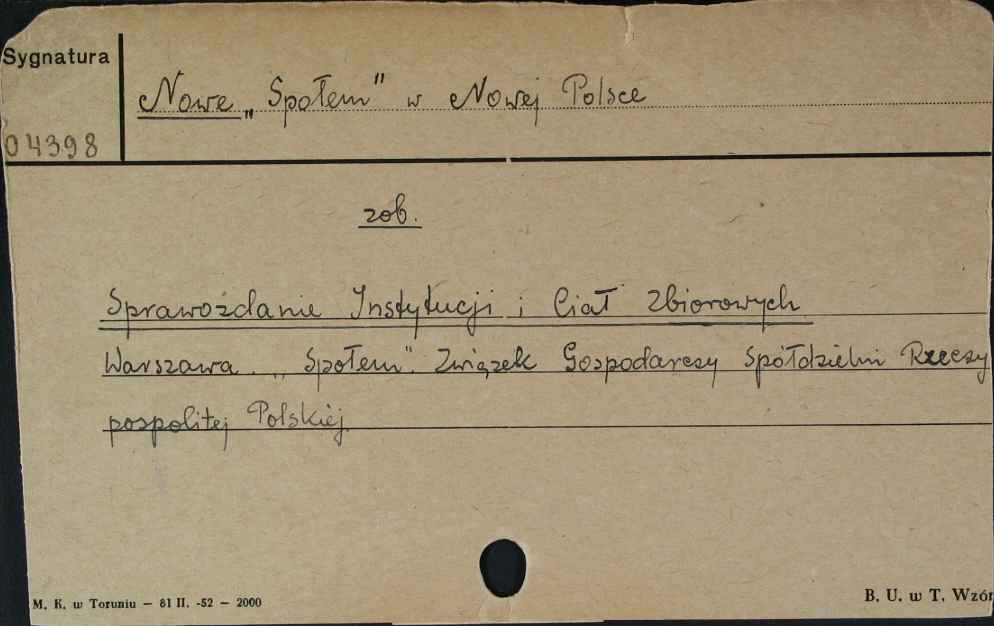 Sygnatura
Nowe „Społem” w Nowej Polsce
04398
zob.
Sprawozdanie Instytucji i Ciał Zbiorowych
Warszawa. „Społem”. Związek Gospodarczy Spółdzielni Rzeczy
pospolitej Polskiej.
M. K. w Toruniu — 81 II. -52 — 2000
B. U. w T. Wzór